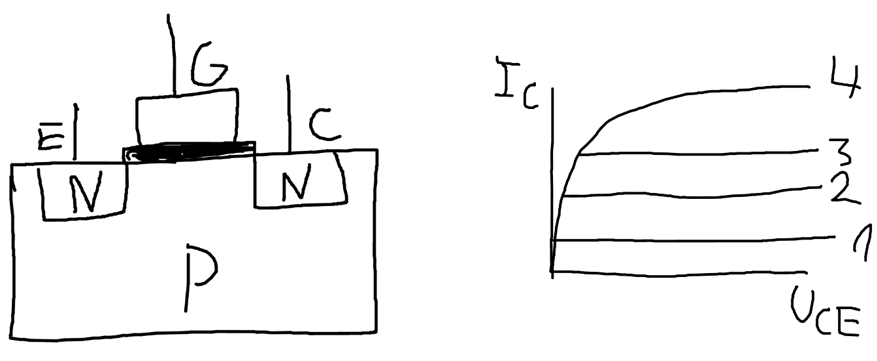 G
E
C
N
N
P
I_C
4
3
2
1
U_CE